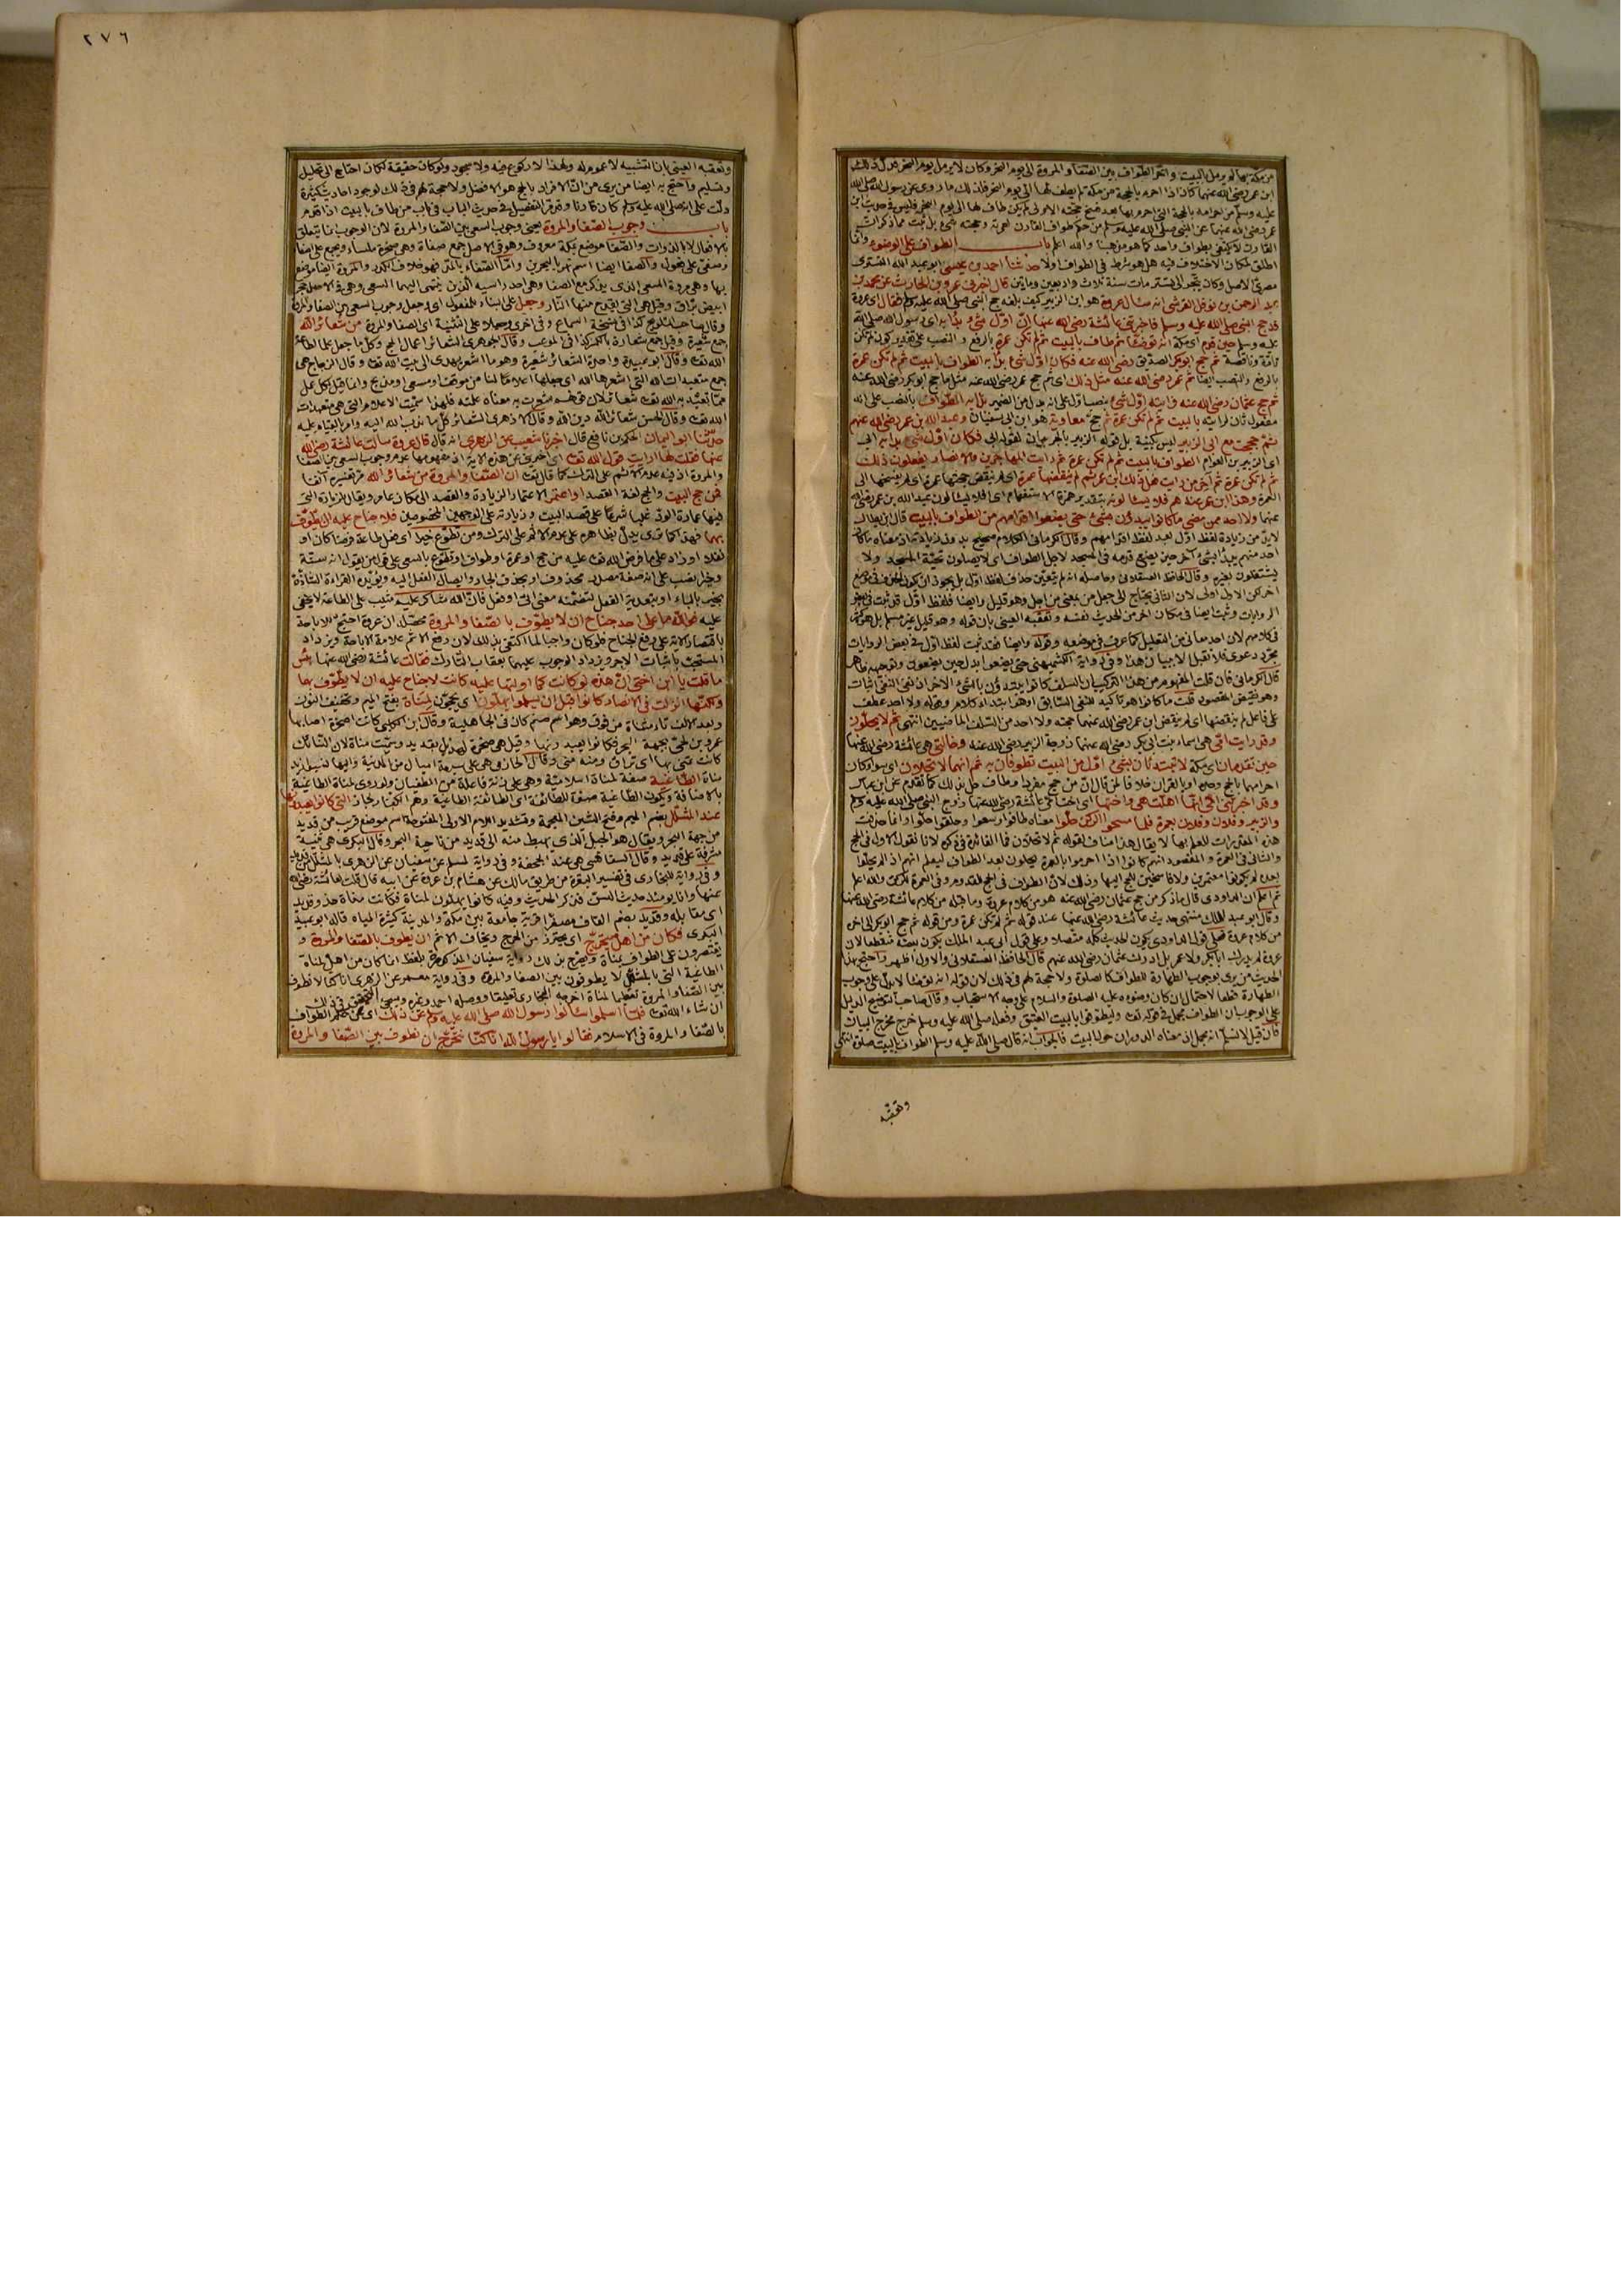 من مكة بهما لم يرمل بالبيت وأخر الطواف بين الصفا والمروة الى يوم النحر وكان لا يرمل يوم النحر فدل ذلك
ابن عمر رضى الله عنهما كان اذا احرم بالحجة من مكة لم يطف لها الى يوم النحر فلذلك ما روى عن رسول الله صلى الله
القارن لا يكتفى بطواف واحد كما هو مذهبنا والله اعلم باب الطواف على الوضوء وانما
اطلق لمكان الاختلاف فيه هل هو شرط فى الطواف اولا حدثنا احمد بن عيسى ابو عبد الله التسترى
مصرى الاصل وكان يتجر الى تستر مات سنة ثلاث واربعين ومايتين قال اخبرنى عمرو بن الحارث عن محمد بن
عبد الرحمن بن نوفل القرشى انه سأل عروة هو ابن الزبير كيف بلغه حج النبى صلى الله عليه وسلم فقال اى عروة
قد حج النبى صلى الله عليه وسلم فاخبرتنى عائشة رضى الله عنها ان اول شىء بدأ به اى رسول الله صلى الله
عليه وسلم حين قدم اى مكة انه توضأ ثم طاف بالبيت ثم لم تكن عمرة بالرفع والنصب على تقدير كون لم تكن
تامة وناقصة ثم حج ابو بكر الصديق رضى الله عنه فكان اول شىء بدأ به الطواف بالبيت ثم لم تكن عمرة
بالرفع والنصب ايضا ثم عمر رضى الله عنه مثل ذلك اى ثم حج عمر رضى الله عنه مثل ما حج ابو بكر رضى الله عنه
ثم حج عثمان رضى الله عنه فرايته اول شىء بنصب اول على انه بدل من الضمير بدأ به الطواف بالنصب على انه
مفعول ثان لرايته بالبيت ثم لم تكن عمرة ثم حج معاوية هو ابن ابى سفيان وعبد الله بن عمر رضى الله عنهم
ثم حججت مع ابى الزبير ليس بكنية بل قوله الزبير بالجر بيان لقوله ابى فكان اول شىء بدأ به ابى
اى الزبير بن العوام الطواف بالبيت ثم لم تكن عمرة ثم رايت المهاجرين والانصار يفعلون ذلك
ثم لم تكن عمرة ثم آخر من رايت فعل ذلك ابن عمر ثم لم ينقضها عمرة اى لم ينقض حجتها عمرة اى لم يفسخها الى
العمرة وهذا ابن عمر عندهم فلا يسألونه بتقدير همزة الاستفهام اى افلا يسألون عبد الله بن عمر رضى الله
عنهما ولا احد ممن مضى ما كانوا يبدؤن بشىء حتى يضعوا اقدامهم من الطواف بالبيت قال ابن بطال
لابد من زيادة لفظ اول بعد لفظ اقدامهم وقال الكرمانى الكلام صحيح بدون زيادة اذ معناه ما كان
احد منهم يبدأ بشىء آخر حين يضع قدمه فى المسجد لاجل الطواف اى لا يصلون تحية المسجد ولا
يشتغلون بغيره وقال الحافظ العسقلانى وحاصله انه لم يتعين حذف لفظ اول بل يجوز ان يكون الحذف فى موضع
آخر لكن الاول اولى لان الثانى يحتاج الى جعل من بمعنى من اجل وهو قليل وايضا فلفظ اول قد ثبت فى بعض
الروايات وثبت ايضا فى مكان آخر من الحديث نفسه وتعقبه العينى بان قوله وهو قليل غير مسلم بل هو كثير
فى كلامهم لان احد معانى من التعليل كما عرف فى موضعه وقوله وايضا فقد ثبت لفظ اول فى بعض الروايات
مجرد دعوى فلا تقبل الا ببيان هذا وفى رواية الكشميهنى حتى يضعوا بدل حين يضعون وتوجيهه ظاهر
قال الكرمانى فان قلت المفهوم من هذا التركيب ان السلف كانوا يبتدؤن بالشىء الآخر اذ نفى النفى اثبات
وهو نقيض المقصود قلت ما كانوا هو تأكيد للنفى السابق او هو ابتداء كلام وقوله ولا احد عطف
على فاعل لم ينقضها اى لم ينقض ابن عمر رضى الله عنهما حجته ولا احد من السلف الماضيين انتهى ثم لا يحلون
وقد رايت امى هى اسماء بنت ابى بكر رضى الله عنهما زوجة الزبير رضى الله عنه وخالتى هى عائشة رضى الله عنها
حين تقدمان اى مكة لا تبتدئان بشىء اول من البيت تطوفان به ثم انهما لا تحلان اى سواء كان
احرامهما بالحج وحده او بالقران خلافا لمن قال ان من حج مفردا وطاف حل بذلك كما تقدم عن ابن عباس
وقد اخبرتنى امى انها اهلت هى واختها اى اخت امى عائشة رضى الله عنها زوج النبى صلى الله عليه وسلم
والزبير وفلان وفلان بعمرة فلما مسحوا الركن حلوا معناه طافوا وسعوا وحلقوا حلوا وانما حذفت
هذه المقدرات للعلم بها لا يقال هذا مناف لقوله ثم لا تحلان فما الفائدة فى ذكره لانا نقول الاول فى الحج
والثانى فى العمرة والمقصود انهم كانوا اذا احرموا بالعمرة يحلون بعد الطواف ليعلم انهم اذا لم يحلوا
بعده لم يكونوا معتمرين ولا فاسخين للحج اليها وذلك لان الطواف فى الحج للقدوم وفى العمرة للركن والله اعلم
ثم اعلم ان الداودى قال ما ذكر من حج عثمان رضى الله عنه هو من كلام عروة وما قبله من كلام عائشة رضى الله عنها
وقال ابو عبد الملك منتهى حديث عائشة رضى الله عنها عند قوله ثم لم تكن عمرة ومن قوله ثم حج ابو بكر الى آخره
من كلام عروة فعلى قول الداودى يكون الحديث كله متصلا وعلى قول ابى عبد الملك يكون بعضه منقطعا لان
عروة لم يدرك ابا بكر ولا عمر بل ادرك عثمان رضى الله عنهم قال الحافظ العسقلانى والاول اظهر واحتج بهذا
الحديث من يرى بوجوب الطهارة للطواف كالصلوة ولا حجة لهم فى ذلك لان قوله انه توضأ لا يدل على وجوب
الطهارة قطعا لاحتمال ان كان وضوءه عليه الصلوة والسلام على وجه الاستحباب وقال صاحب التوضيح الدليل
على الوجوب ان الطواف مجمل فى قوله تعالى وليطوفوا بالبيت العتيق وفعله صلى الله عليه وسلم خرج مخرج البيان
فان قيل لا نسلم انه مجمل اذ معناه الدوران حول البيت فالجواب انه قال صلى الله عليه وسلم الطواف بالبيت صلوة انتهى
وتعقبه
٢٧٦
وتعقبه العينى بان التشبيه لا عموم له ولهذا لا ركوع فيه ولا سجود ولو كان حقيقة لكان احتاج الى تحليل
وتسليم واحتج به ايضا من يرى من ان الافراد بالحج هو الافضل ولا حجة لهم فى ذلك لوجود احاديث كثيرة
دلت على انه صلى الله عليه وسلم كان قارنا وقد مر التفصيل فى حديث الباب فى باب من طاف بالبيت اذا قدم
باب وجوب الصفا والمروة يعنى وجوب السعى بين الصفا والمروة لان الوجوب انما يتعلق
بالافعال لا بالذوات والصفا موضع بمكة معروف وهو فى الاصل جمع صفاة وهى صخرة ملساء ويجمع على اصفاء
بها وهى مروة السعى الذى يذكر مع الصفا وهى احد راسيه الذين ينتهى اليهما السعى وهى فى الاصل حجر
ابيض براق وقيل هى التى يقدح منها النار وجعل على بناء المفعول اى وجعل وجوب السعى بين الصفا والمروة
وقال صاحب التلويح كذا فى نسخة السماع وفى اخرى وجعلا على التثنية اى الصفا والمروة من شعائر الله
الله تعالى وقال ابو عبيدة واحدة الشعائر شعيرة وهو ما اشعر ليهدى الى بيت الله تعالى وقال الزجاج هى
جمع متعبدات الله التى اشعرها الله اى جعلها اعلاما لنا من موقف او مسعى او مذبح وانما قيل لكل عمل
الله تعالى وقال الحسن شعائر الله دين الله وقال الازهرى الشعائر كل ما ندب الله اليه وامر بالقيام عليه
حدثنا ابو اليمان الحكم بن نافع قال اخبرنا شعيب عن الزهرى انه قال قال عروة سألت عائشة رضى الله
عنها فقلت لها ارايت قول الله تعالى اى اخبرينى عن هذه الآية اذ مفهومها عدم وجوب السعى بين الصفا
والمروة اذ فيه عدم الاثم على الترك كما قال تعالى ان الصفا والمروة من شعائر الله مر تفسيره آنفا
فمن حج البيت والحج لغة القصد او اعتمر الاعتمار الزيادة والقصد الى مكان عامر ويقال الزيادة التى
فيها عمارة الود غلبا شرعا على قصد البيت وزيارته على الوجهين المخصوصين فلا جناح عليه ان يطوف
بهما فهذا كما ترى يدل بظاهره على عدم الاثم على الترك ومن تطوع خيرا اى فعل طاعة فرضا كان او
نفلا او زاد على ما فرض الله تعالى عليه من حج او عمرة او طواف او تطوع بالسعى على قول من يقول انه سنة
وخيرا نصب على انه صفة مصدر محذوف او بحذف الجار وايصال الفعل اليه ويؤيده القراءة الشاذة
بخير بالباء او بتعدية الفعل لتضمنه معنى اتى او فعل فان الله شاكر عليم مثيب على الطاعة لا يخفى
عليه فوالله ما على احد جناح ان لا يطوف بالصفا والمروة محصله ان عروة احتج للاباحة
باقتصار الآية على رفع الجناح فلو كان واجبا لما اكتفى بذلك لان رفع الاثم علامة الاباحة ويزداد
المستحب باثبات الاجر ويزداد الوجوب عليهما بعقاب التارك فقالت عائشة رضى الله عنها بئس
ما قلت يا ابن اختى ان هذه لو كانت كما اولتها عليه كانت لا جناح عليه ان لا يطوف بهما
ولكنها انزلت فى الانصار كانوا قبل ان يسلموا يهلون اى يحجون لمناة بفتح الميم وتخفيف النون
وبعد الالف تاء مثناة من فوق وهو اسم صنم كان فى الجاهلية وقال ابن الكلبى كانت صخرة نصبها
عمرو بن لحى بجهة البحر فكانوا يعبدونها وقيل هى صخرة لهذيل بقديد وسميت مناة لان النسائك
كانت تمنى بها اى تراق ومنه منى وقال الحازمى هى على سبعة اميال من المدينة واليها نسبوا زيد
مناة الطاغية صفة لمناة اسلامية وهى على زنة فاعلة من الطغيان ولو روى لمناة الطاغية
بالاضافة ويكون الطاغية صفة للطائفة اى الطائفة الطاغية وهم الكفار لجاز التى كانوا يعبدونها
عند المشلل بضم الميم وفتح الشين المعجمة وتشديد اللام الاولى المفتوحة اسم موضع قريب من قديد
من جهة البحر ويقال هو الجبل الذى يهبط منه الى قديد من ناحية البحر وقال البكرى هى ثنية
مشرفة على قديد وقال السفاقسى هى عند الجحفة وفى رواية لمسلم عن سفيان عن الزهرى بالمشلل من قديد
وفى رواية للبخارى فى تفسير البقرة من طريق مالك عن هشام بن عروة عن ابيه قال قلت لعائشة رضى الله
عنها وانا يومئذ حديث السن فذكر الحديث وفيه كانوا يهلون لمناة فكانت مناة حذو قديد
اى مقابله وقديد بضم القاف مصغرا قرية جامعة بين مكة والمدينة كثيرة المياه قاله ابو عبيد
البكرى فكان من اهل يتحرج اى يحترز من الحرج ويخاف الاثم ان يطوف بالصفا والمروة و
يقتصرون على الطواف بمناة ويصرح بذلك رواية سفيان المذكورة بلفظ انما كان من اهل لمناة
الطاغية التى بالمشلل لا يطوفون بين الصفا والمروة وفى رواية معمر عن الزهرى انا كنا لا نطوف
بين الصفا والمروة تعظيما لمناة اخرجه البخارى تعليقا ووصله احمد وغيره وسيجىء التحقيق فى ذلك
ان شاء الله تعالى فلما اسلموا سألوا رسول الله صلى الله عليه وسلم عن ذلك اى عن حكم الطواف
بالصفا والمروة فى الاسلام فقالوا يا رسول الله انا كنا نتحرج ان نطوف بين الصفا والمروة